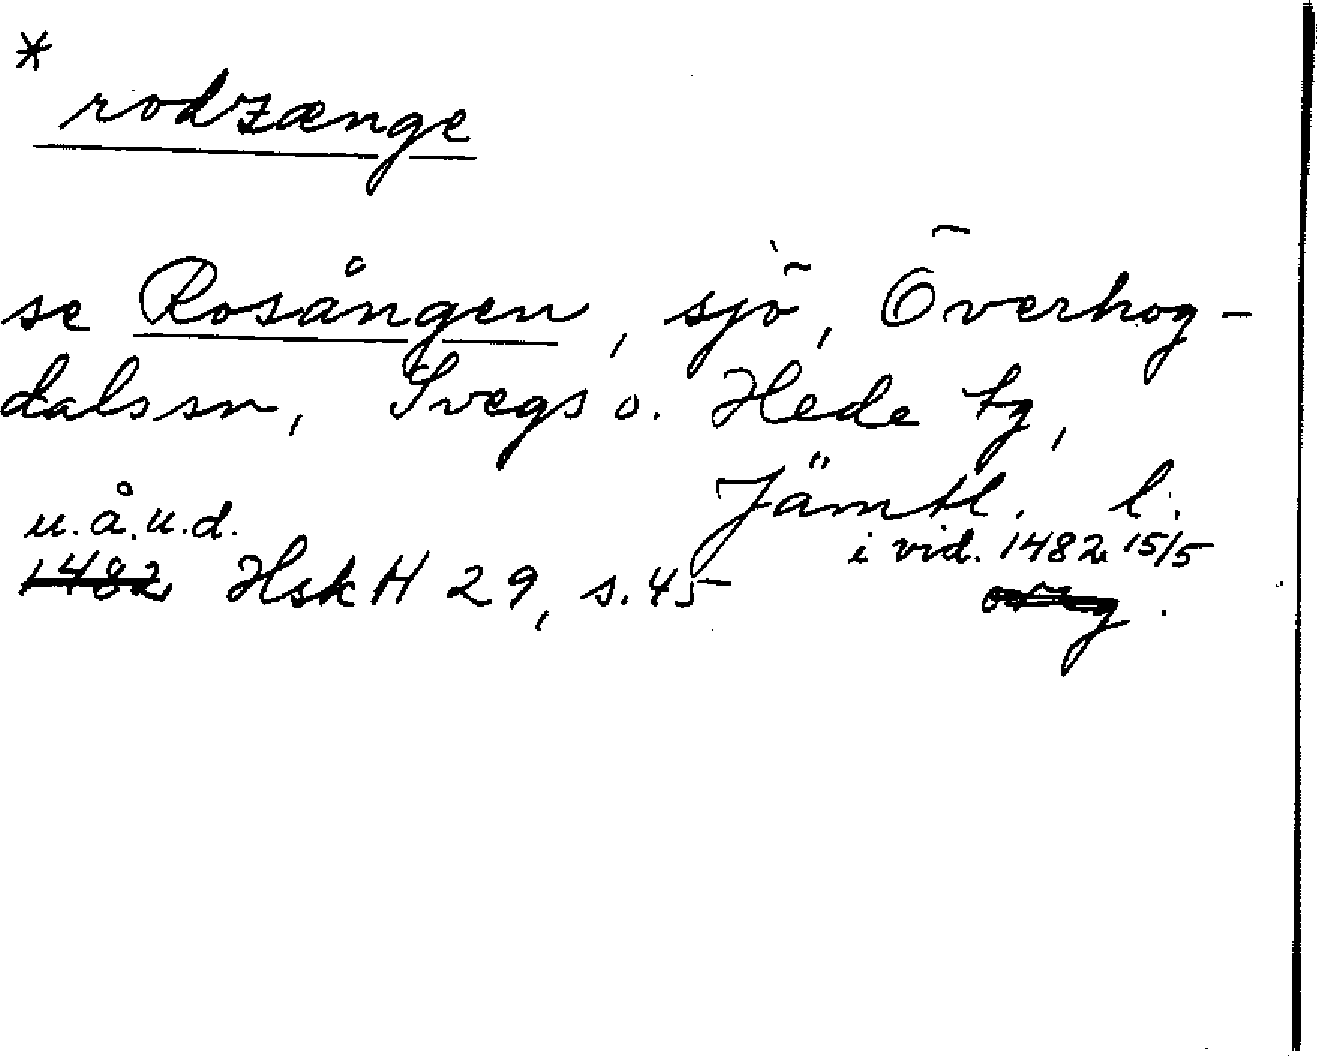 *
rodzænge
se Rosången, sjö, Överhog-
dalssn, Svegs o. Hede tg,
Jämtl. l.
u.å.u.d. i vid. 1482 15/5
1482 HskH 29, s. 45 orig.